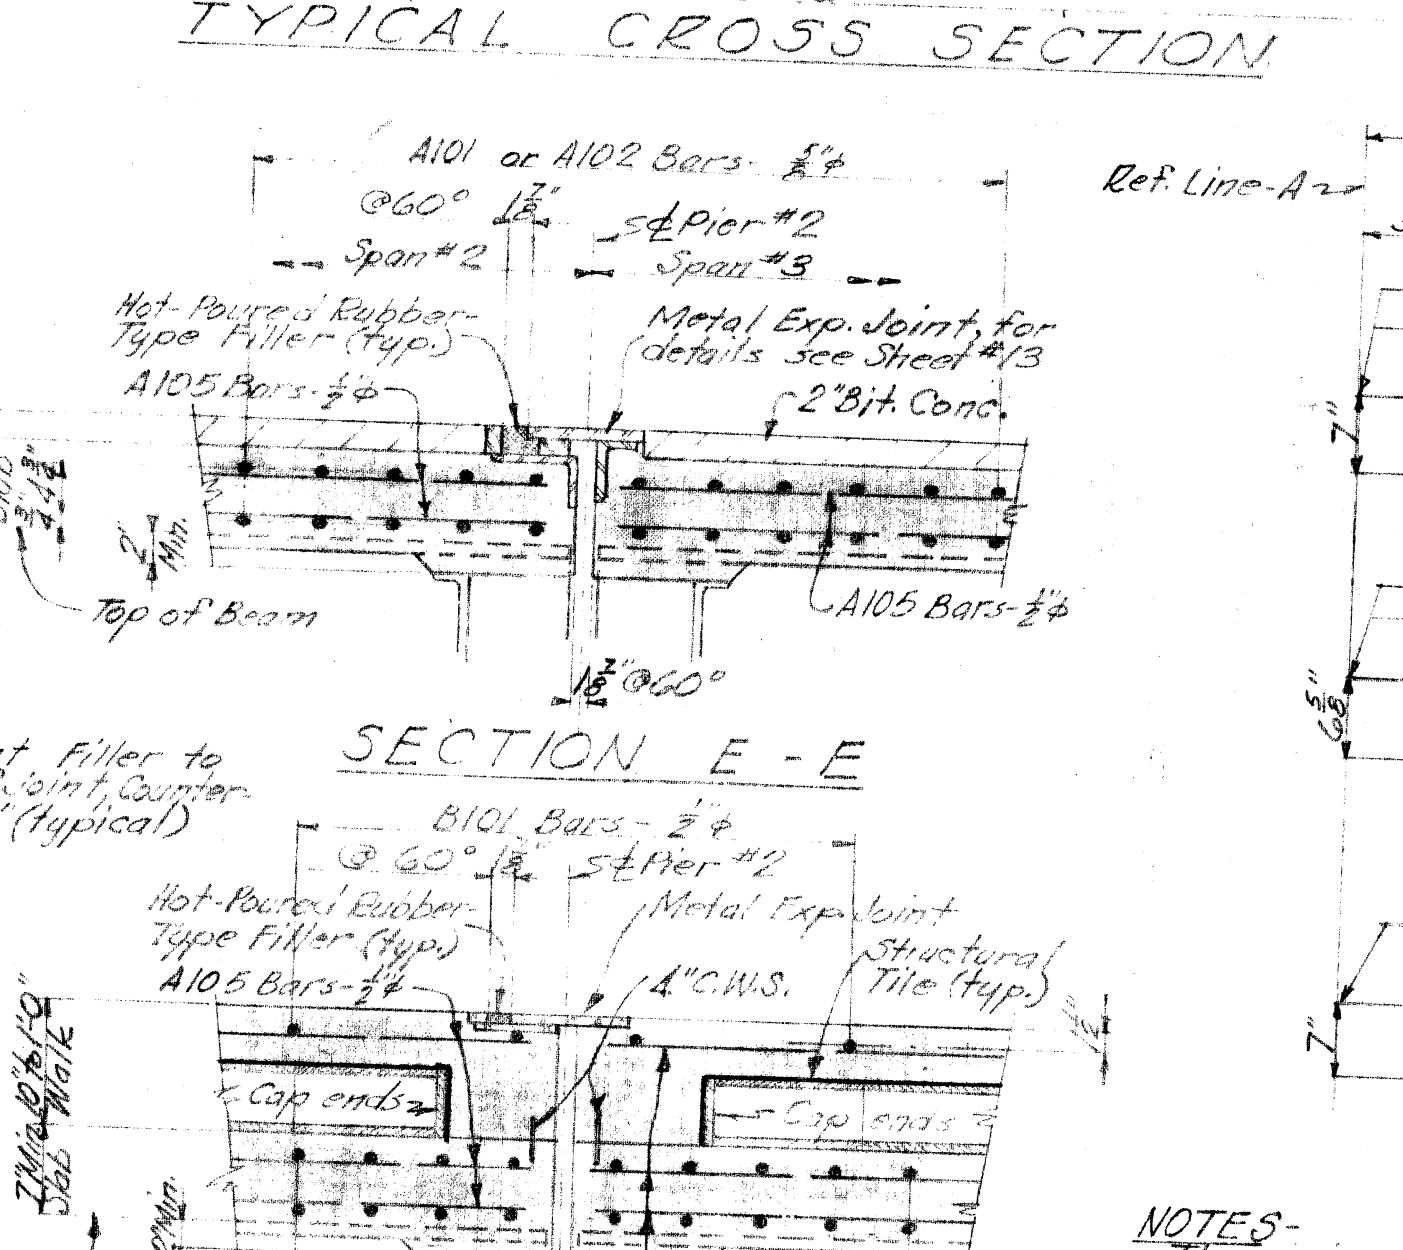 TYPICAL CROSS SECTION
A101 or A102 Bars- 5/8"φ
@60° 1 7/8"
S ℄ Pier #2
Span #2
Span #3
Ref. Line-A
Hot-Poured Rubber-
Type Filler (typ.)
Metal Exp. Joint, for
details see Sheet #13
A105 Bars-1/2"φ
2" Bit. Conc.
7"
4 3/4"
2"
Min.
Top of Beam
A105 Bars-1/2"φ
1 7/8" @60°
6 5/8"
SECTION E-E
Filler to
Joint, Counter-
(typical)
B101 Bars- 1/2"φ
@ 60°
S ℄ Pier #2
Hot-Poured Rubber-
Type Filler (typ.)
Metal Exp. Joint
Structural
Tile (typ.)
A105 Bars-1/2"φ
4" C.W.S.
1 1/2"
7"
7"Min. 10" to 1'-0"
Slab Walk
Cap ends
Cap ends
Min.
NOTES-